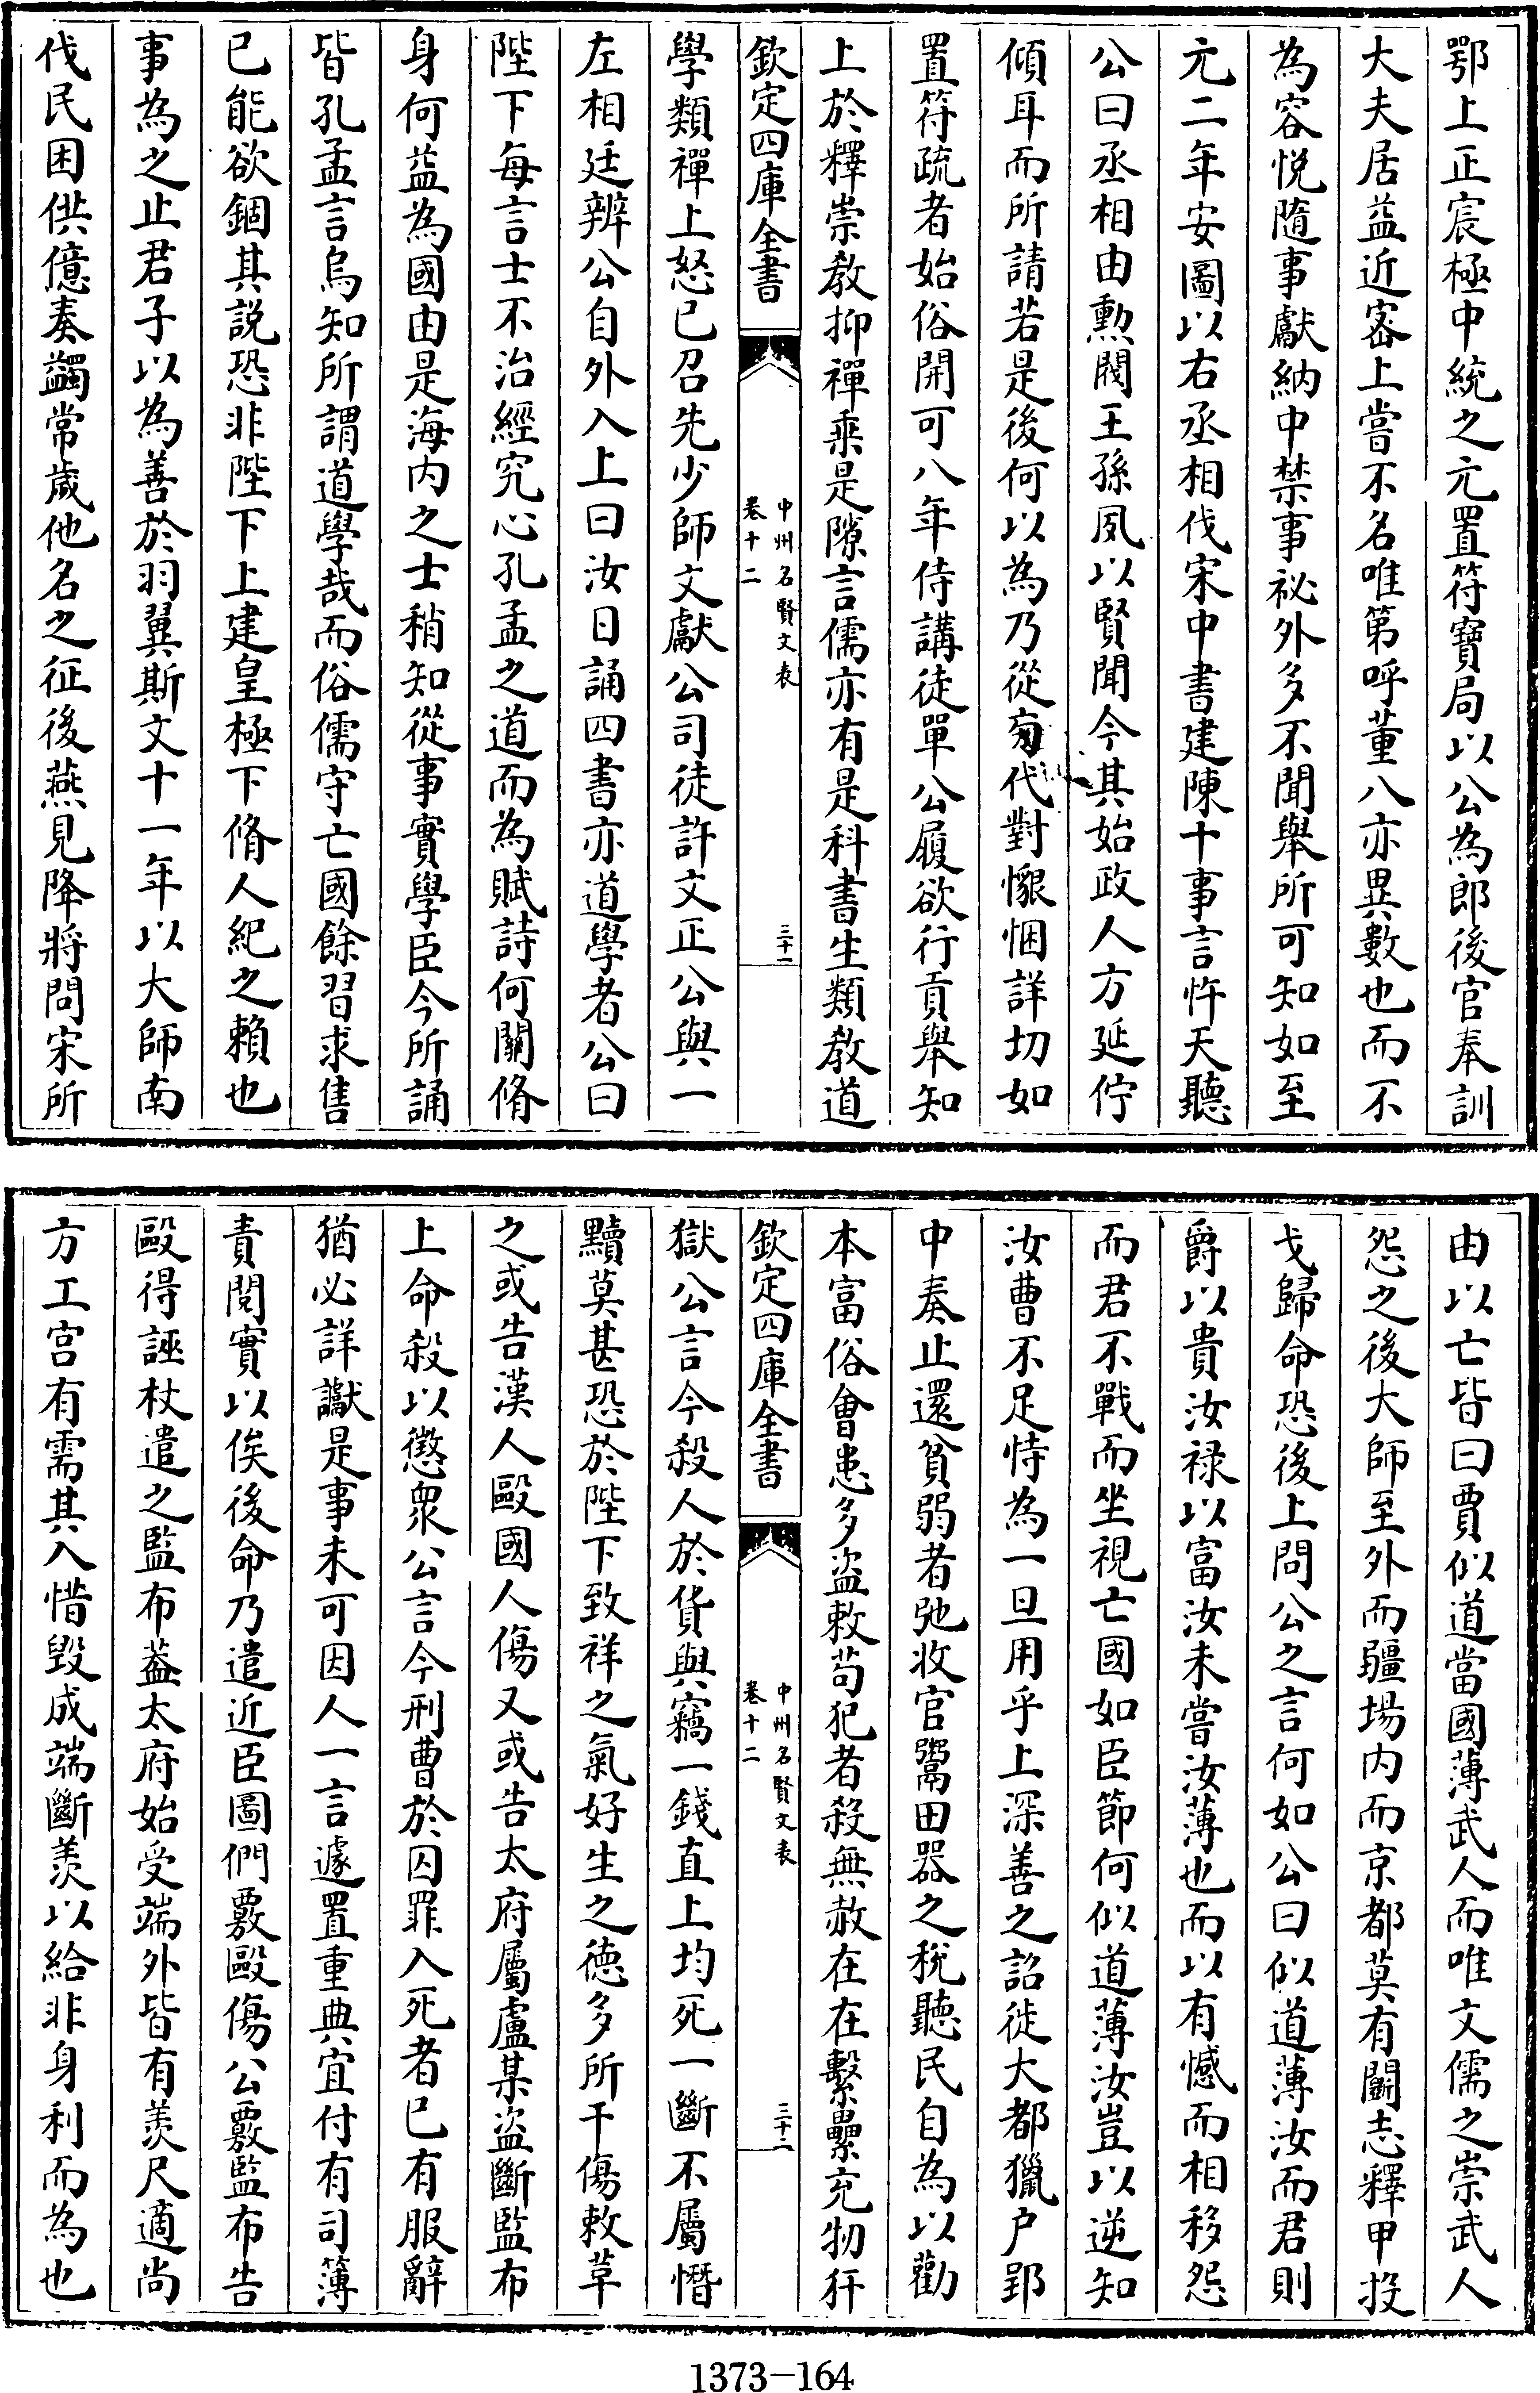 鄂上正宸極中統之元置符寶局以公為郎後官奉訓
大夫居益近密上嘗不名唯第呼董八亦異數也而不
為容悦隨事獻納中禁事祕外多不聞舉所可知如至
元二年安圖以右丞相伐宋中書建陳十事言忤天聽
公曰丞相由勲閥王孫夙以賢聞今其始政人方延佇
傾耳而所請若是後何以為乃從旁代對懇悃詳切如
置符疏者始俗開可八年侍講徒單公履欲行貢舉知
上於釋崇教抑禪乘是隙言儒亦有是科書生類教道
欽定四庫全書
中州名賢文表
卷十二
三十一
學類禪上怒已召先少師文獻公司徒許文正公與一
左相廷辨公自外入上曰汝日誦四書亦道學者公曰
陛下每言士不治經究心孔孟之道而為賦詩何關脩
身何益為國由是海内之士稍知從事實學臣今所誦
皆孔孟言烏知所謂道學哉而俗儒守亡國餘習求售
已能欲錮其説恐非陛下上建皇極下脩人紀之賴也
事為之止君子以為善於羽翼斯文十一年以大師南
伐民困供億奏蠲常歳他名之征後燕見降將問宋所
由以亡皆曰賈似道當國薄武人而唯文儒之崇武人
怨之後大師至外而疆場内而京都莫有鬭志釋甲投
戈歸命恐後上問公之言何如公曰似道薄汝而君則
爵以貴汝禄以富汝未嘗汝薄也而以有憾而相移怨
而君不戰而坐視亡國如臣節何似道薄汝豈以逆知
汝曹不足恃為一旦用乎上深善之詔徙大都獵户郢
中奏止還貧弱者弛收官鬻田器之税聽民自為以勸
本富俗會患多盗敕苟犯者殺無赦在在繫纍充牣犴
欽定四庫全書
中州名賢文表
卷十二
三十二
獄公言今殺人於貨與竊一錢直上均死一斷不屬憯
黷莫甚恐於陛下致祥之氣好生之德多所干傷敕草
之或告漢人毆國人傷又或告太府屬盧某盗斷監布
上命殺以懲衆公言今刑曹於囚罪入死者已有服辭
猶必詳讞是事未可因人一言遽置重典宜付有司簿
責閲實以俟後命乃遣近臣圖們覈毆傷公覈監布告
毆得誣杖遣之監布葢太府始受端外皆有羨尺適尚
方工宫有需其入惜毁成端斷羨以給非身利而為也
1373-164